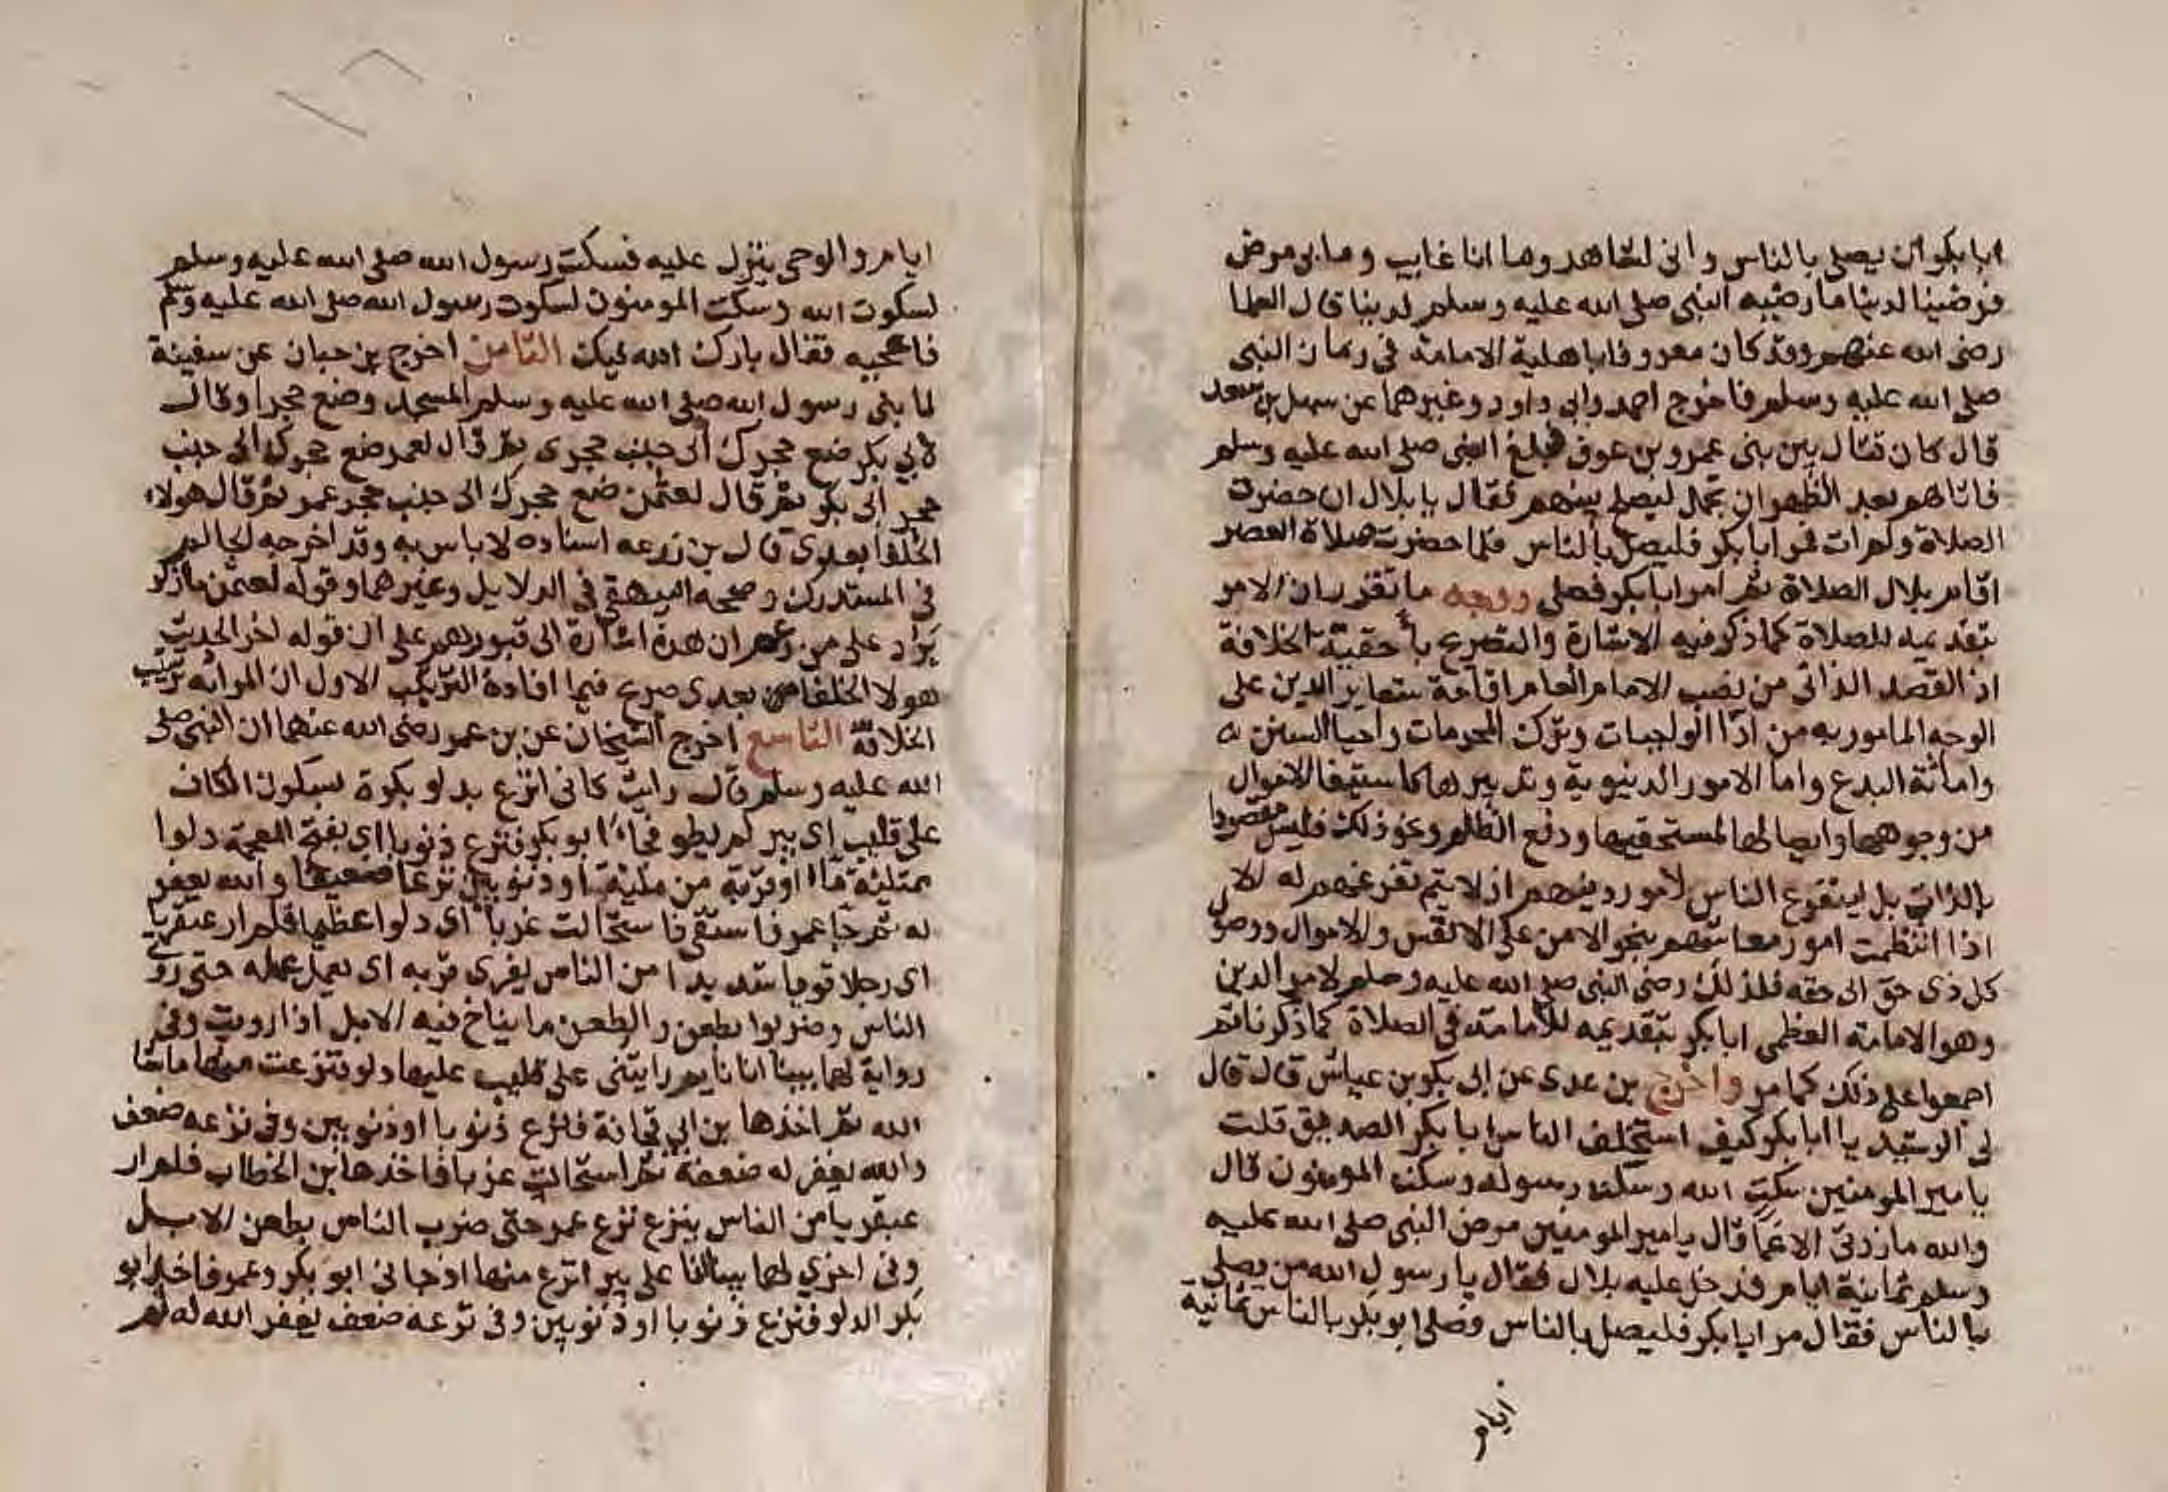 ابا بكر ان يصلي بالناس واني لشاهد وما انا غايب وما بي مرض
فرضينا لدنيانا ما رضيه النبي صلى الله عليه وسلم لديننا قال العلما
رضى الله عنهم وقد كان معروفا باهلية الامامة في زمان النبي
صلى الله عليه وسلم فاخرج احمد وابي داود وغيرهما عن سهل بن سعد
قال كان قتال بين بني عمرو بن عوف فبلغ النبي صلى الله عليه وسلم
فاتاهم بعد الظهر ليصلح بينهم فقال يا بلال ان حضرت
الصلاة ولم ات فمر ابا بكر فليصل بالناس فلما حضرت صلاة العصر
اقام بلال الصلاة ثم امر ابا بكر فصلى ووجه ما تقرر ان الامر
بتقديمه للصلاة كما ذكر فيه الاشارة والتصريح باحقية الخلافة
اذ القصد الذاتي من نصب الامام العام اقامة شعاير الدين على
الوجه المامور به من ادا الواجبات وترك المحرمات واحيا السنن
واماتة البدع واما الامور الدنيوية وتدبيرها كاستيفا الاموال
من وجوهها وايصالها لمستحقيها ودفع الظلم ونحو ذلك فليس مقصودا
بالذات بل ليتفرغ الناس لامور دينهم اذ لا يتم تفرغهم له الا
اذا انتظمت امور معاشهم بنحو الامن على الانفس والاموال ووصول
كل ذي حق الى حقه فلذلك رضى النبي صلى الله عليه وسلم لامر الدين
وهو الامامة العظمى ابا بكر بتقديمه للامامة في الصلاة كما ذكرنا ثم
اجمعوا على ذلك كما مر واخرج بن عدي عن ابي بكر بن عياش قال قال
لي الرشيد يا ابا بكر كيف استخلف الناس ابا بكر الصديق قلت
يا امير المومنين سكت الله وسكت رسوله وسكت المومنون قال
والله ما زدتني الا غما قال يا امير المومنين مرض النبي صلى الله عليه
وسلم ثمانية ايام فدخل عليه بلال فقال يا رسول الله من يصلي
بالناس فقال مر ابا بكر فليصل بالناس فصلى ابو بكر بالناس ثمانية
ايام
ايام والوحي ينزل عليه فسكت رسول الله صلى الله عليه وسلم
لسكوت الله وسكت المومنون لسكوت رسول الله صلى الله عليه وسلم
فاعجبه فقال بارك الله فيك الثامن اخرج بن حبان عن سفينة
لما بنى رسول الله صلى الله عليه وسلم المسجد وضع حجرا وقال
لابي بكر ضع حجرك الى جنب حجري ثم قال لعمر ضع حجرك الى جنب
حجر ابي بكر ثم قال لعثمن ضع حجرك الى جنب حجر عمر ثم قال هولاء
الخلفا بعدي قال بن زرعه اسناده لا باس به وقد اخرجه الحاكم
في المستدرك وصححه البيهقي في الدلايل وغيرهما وقوله لعثمن ما ذكر
يرد على من زعم ان هذه اشارة الى قبورهم على ان قوله اخر الحديث
هولا الخلفا من بعدي صريح فيما افاده الترتيب الاول ان المراد به ترتيب
الخلافة التاسع اخرج الشيخان عن بن عمر رضى الله عنهما ان النبي صلى
الله عليه وسلم قال رايت كاني انزع بدلو بكرة بسكون الكاف
على قليب اي بير لم يطو فجاء ابو بكر فنزع ذنوبا اي بفتح المعجمة دلوا
ممتلئة ماء او قريبه من مليئة او ذنوبين نزعا ضعيفا والله يغفر
له ثم جا عمر فاستقى فاستحالت غربا اي دلوا عظيما فلم ار عبقريا
اي رجلا قويا شديدا من الناس يفرى فريه اي يعمل عمله حتى روى
الناس وضربوا بطعن والطعن ما يناخ فيه الابل اذا رويت وفي
رواية لهما بينا انا نايم رايتني على قليب عليها دلو فنزعت منها ما شا
الله ثم اخذها بن ابي قحافة فنزع ذنوبا او ذنوبين وفي نزعه ضعف
والله يغفر له ضعفه ثم استحالت غربا فاخذها بن الخطاب فلم ار
عبقريا من الناس ينزع نزع عمر حتى ضرب الناس بطعن الابل
وفي اخرى لهما بينا انا على بير انزع منها اذ جاني ابو بكر وعمر فاخذ ابو
بكر الدلو فنزع ذنوبا او ذنوبين وفي نزعه ضعف يغفر الله له ثم